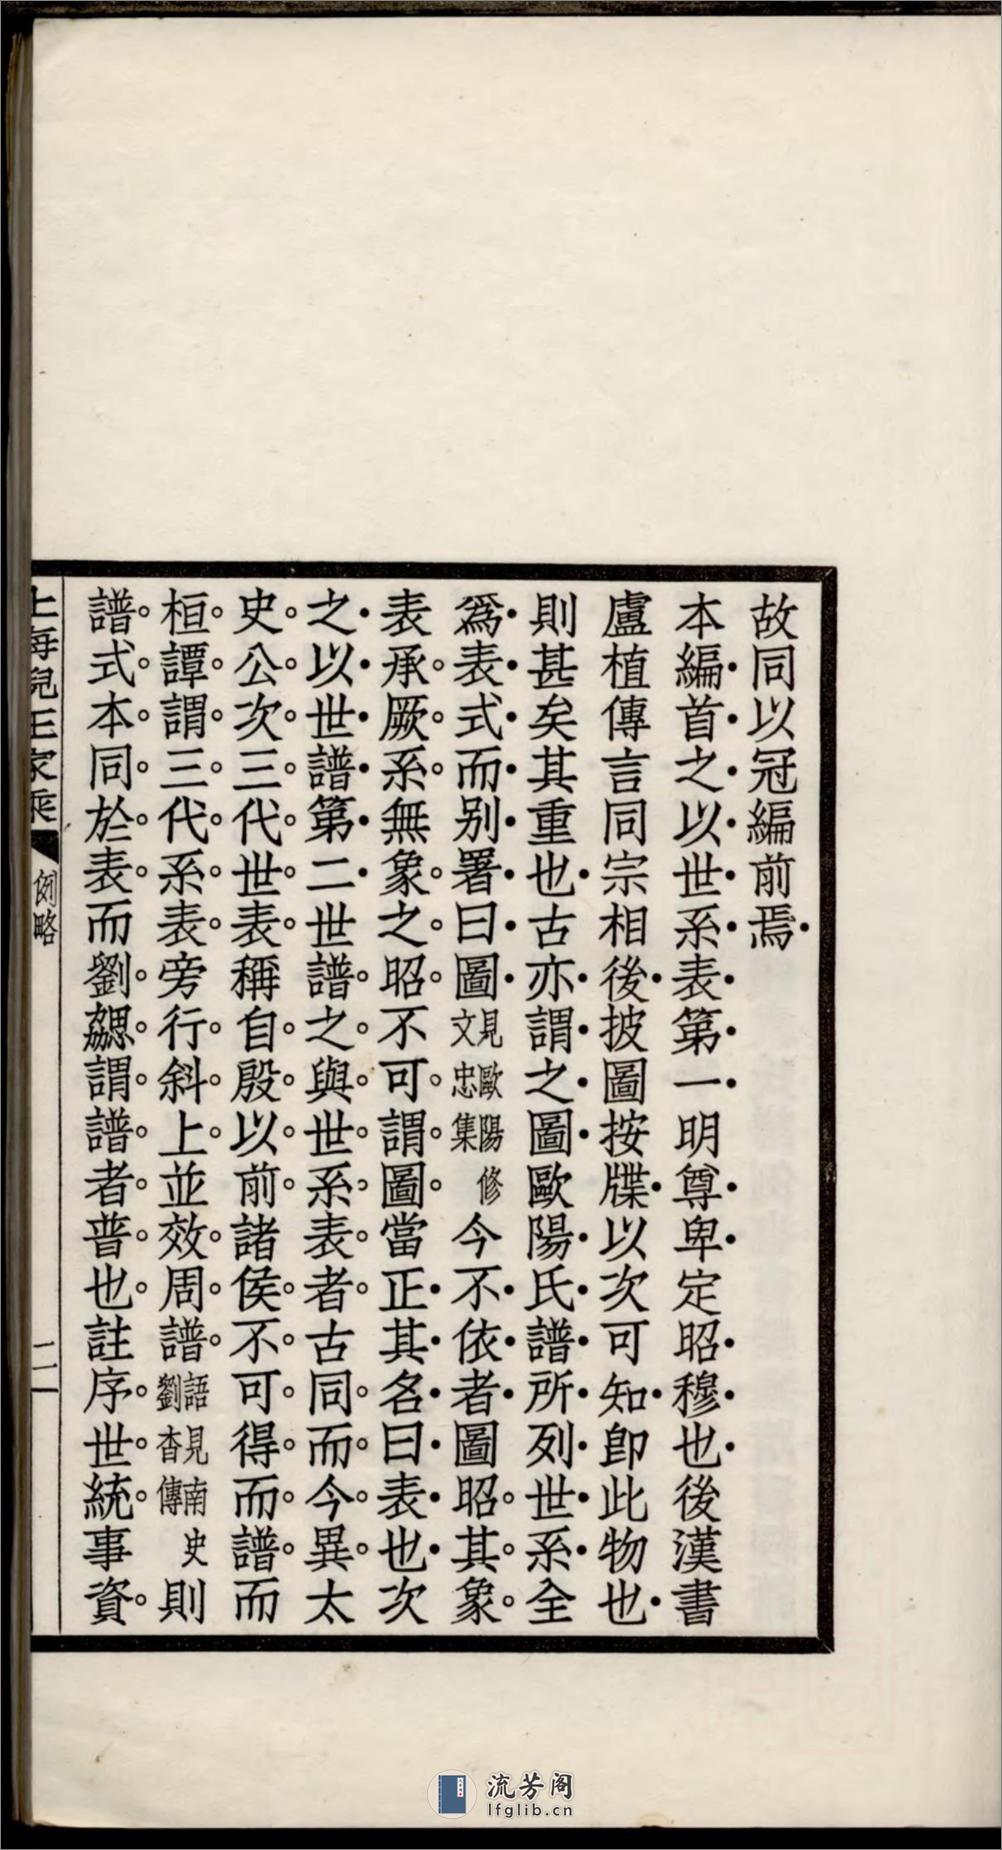 故同以冠編前焉
本編首之以世系表第一明尊卑定昭穆也後漢書
盧植傳言同宗相後披圖按牒以次可知卽此物也
則甚矣其重也古亦謂之圖歐陽氏譜所列世系全
爲表式而别署曰圖見歐陽修文忠集今不依者圖昭其象
表承厥系無象之昭不可謂圖當正其名曰表也次
之以世譜第二世譜之與世系表者古同而今異太
史公次三代世表稱自殷以前諸侯不可得而譜而
桓譚謂三代系表旁行斜上並效周譜語見南史劉杳傳則
譜式本同於表而劉勰謂譜者普也註序世統事資
上海兒王家乘
例略
二
流芳阁
lfglib.cn